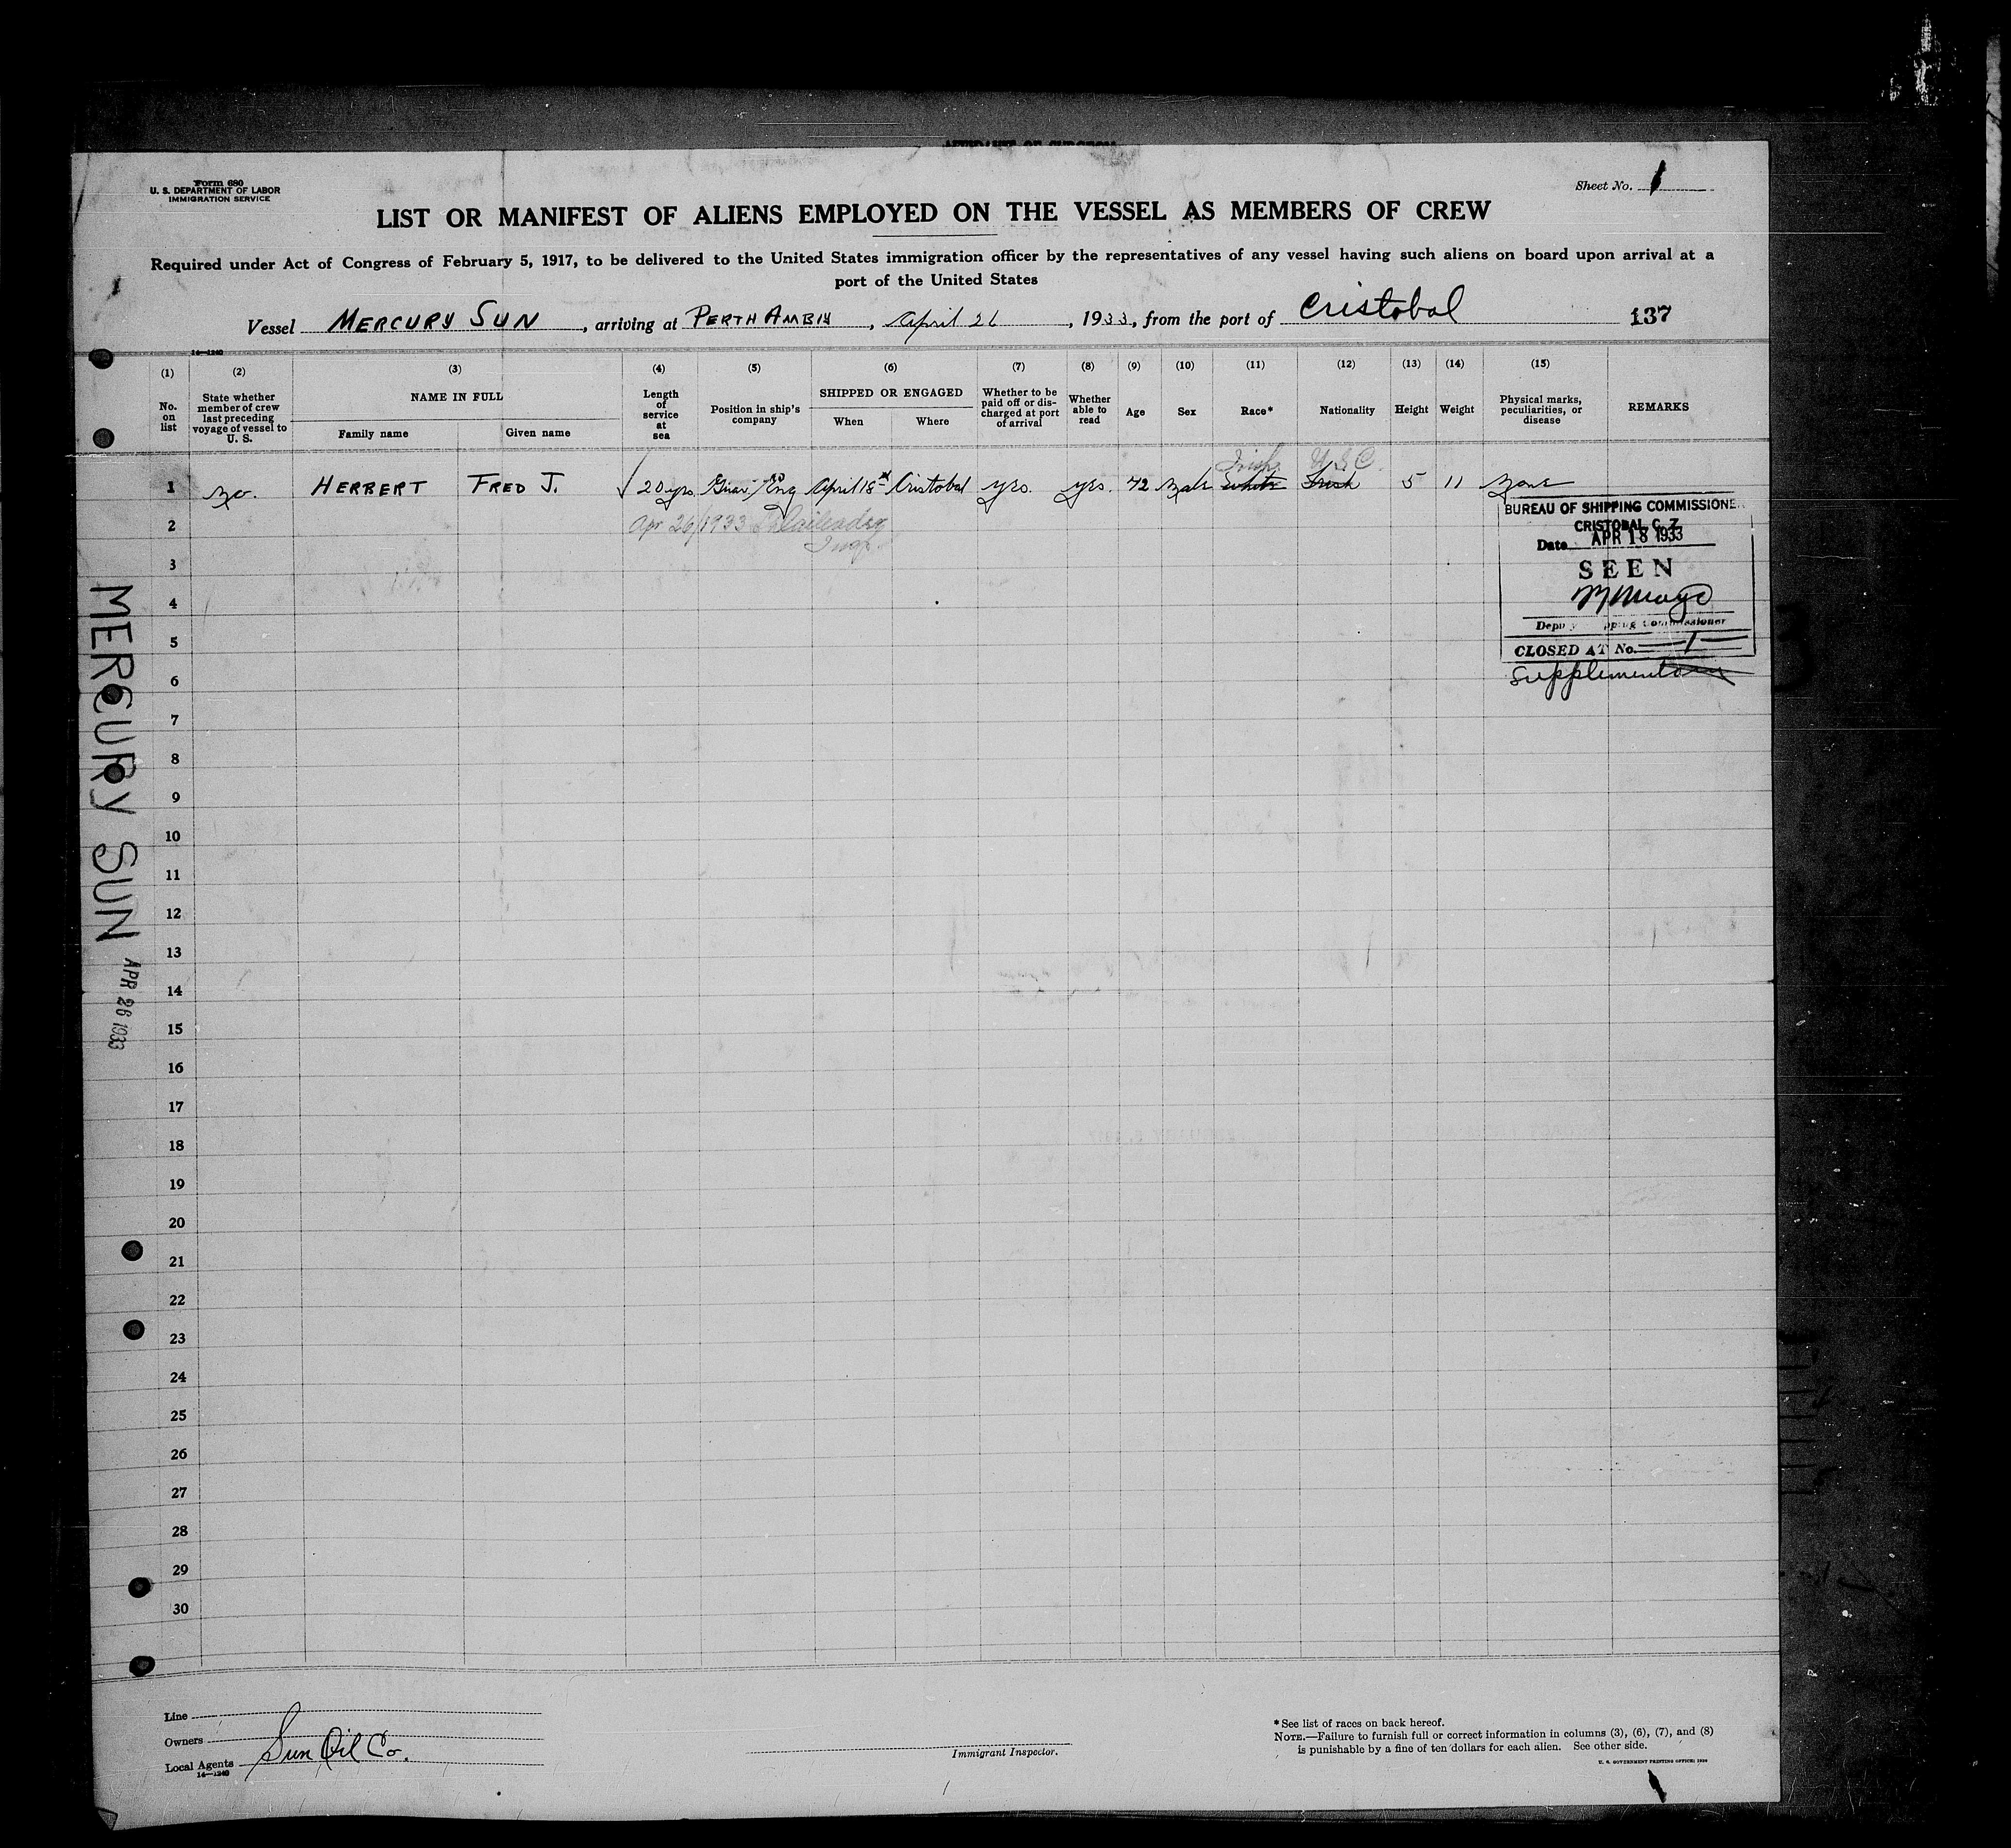 Form 680
U. S. DEPARTMENT OF LABOR
IMMIGRATION SERVICE
Sheet No. 1
LIST OR MANIFEST OF ALIENS EMPLOYED ON THE VESSEL AS MEMBERS OF CREW
Required under Act of Congress of February 5, 1917, to be delivered to the United States immigration officer by the representatives of any vessel having such aliens on board upon arrival at a
port of the United States
Vessel MERCURY SUN, arriving at PERTH AMBIY, April 26, 1933, from the port of Cristobal 137
14—1240
(1) (2) (3) (4) (5) (6) (7) (8) (9) (10) (11) (12) (13) (14) (15)
No. on list
State whether member of crew last preceding voyage of vessel to U. S.
NAME IN FULL
Family name
Given name
Length of service at sea
Position in ship's company
SHIPPED OR ENGAGED
When
Where
Whether to be paid off or discharged at port of arrival
Whether able to read
Age
Sex
Race*
Nationality
Height
Weight
Physical marks, peculiarities, or disease
REMARKS
Irish U S C
1 no. HERBERT FRED J. √ 20 yrs. Eng April 18th Cristobal yes. yes. 42 male White Irish 5 11 none
2 Apr 26/1933
Insp.
3
4
5
6
7
8
9
10
11
12
13
14
15
16
17
18
19
20
21
22
23
24
25
26
27
28
29
30
BUREAU OF SHIPPING COMMISSIONER
CRISTOBAL C. Z.
Date APR 18 1933
SEEN
Deputy Shipping Commissioner
CLOSED AT No. 1
Supplementary
MERCURY SUN APR 26 1933
Line
Owners
Local Agents Sun Oil Co.
14—1240
Immigrant Inspector.
* See list of races on back hereof.
NOTE.—Failure to furnish full or correct information in columns (3), (6), (7), and (8)
is punishable by a fine of ten dollars for each alien. See other side.
U. S. GOVERNMENT PRINTING OFFICE: 1930